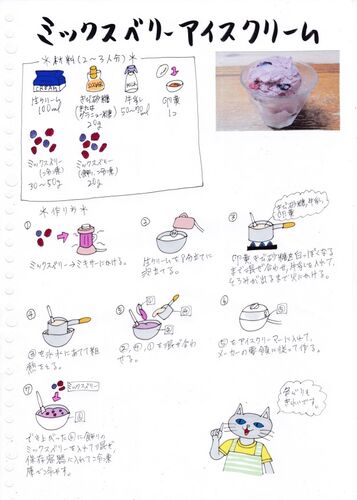 ミックスベリーアイスクリーム
＊材料(2〜3人分)＊
CREAM
SUGAR
MILK
生クリーム
100ml
きび砂糖
(または
グラニュー糖)
20g
牛乳
50〜70ml
卵黄
1コ
ミックスベリー
(冷凍)
30〜50g
ミックスベリー
20g
＊作り方＊
①
ミックスベリー→ミキサーにかける。
②
生クリームを
泡立てる。
③
きび砂糖、牛乳、
卵黄
卵黄、きび砂糖を白っぽくなる
まで混ぜ合わせ、牛乳を入れて、
とろみが出るまで火にかける。
④
③を氷水にあてて粗
熱をとる。
⑤
②、④、①を混ぜ合わ
せる。
⑥
⑤をアイスクリーマーに入れて、
メーカーの要領に従って作る。
⑦
ミックスベリー
でき上がった⑥に飾りの
ミックスベリーを入れて混ぜ、
保存容器に入れて冷凍
庫で冷やす。
色どりも
きれいです。